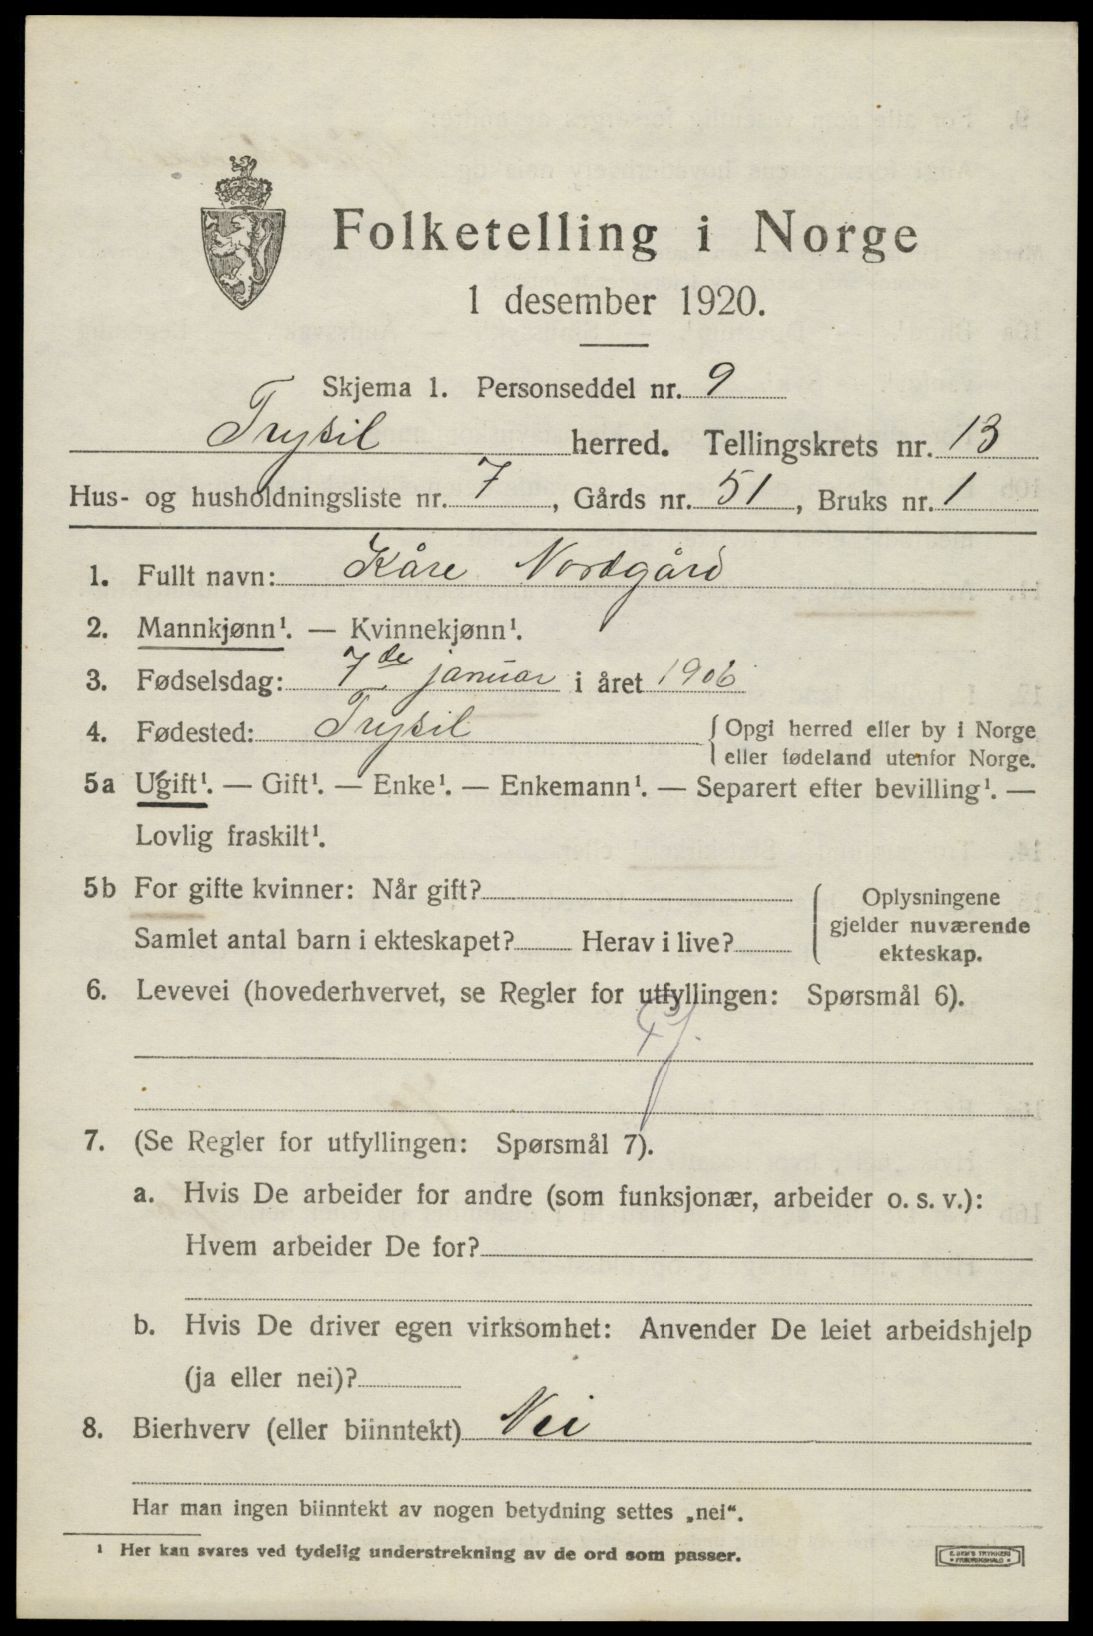 Folketelling i Norge
1 desember 1920.
Skjema 1. Personseddel nr. 9
Trysil herred. Tellingskrets nr. 13
Hus- og husholdningsliste nr. 7, Gårds nr. 51, Bruks nr. 1
1. Fullt navn: Kåre Nordgård
2. Mannkjønn¹. — Kvinnekjønn¹.
3. Fødselsdag: 7de januar i året 1906
4. Fødested: Trysil { Opgi herred eller by i Norge
eller fødeland utenfor Norge.
5a Ugift¹. — Gift¹. — Enke¹. — Enkemann¹. — Separert efter bevilling¹. —
Lovlig fraskilt¹.
5b For gifte kvinner: Når gift?
Samlet antal barn i ekteskapet? Herav i live?
{ Oplysningene
gjelder nuværende
ekteskap.
6. Levevei (hovederhvervet, se Regler for utfyllingen: Spørsmål 6).
7. (Se Regler for utfyllingen: Spørsmål 7).
a. Hvis De arbeider for andre (som funksjonær, arbeider o. s. v.):
Hvem arbeider De for?
b. Hvis De driver egen virksomhet: Anvender De leiet arbeidshjelp
(ja eller nei)?
8. Bierhverv (eller biinntekt) Nei
Har man ingen biinntekt av nogen betydning settes „nei“.
¹ Her kan svares ved tydelig understrekning av de ord som passer.